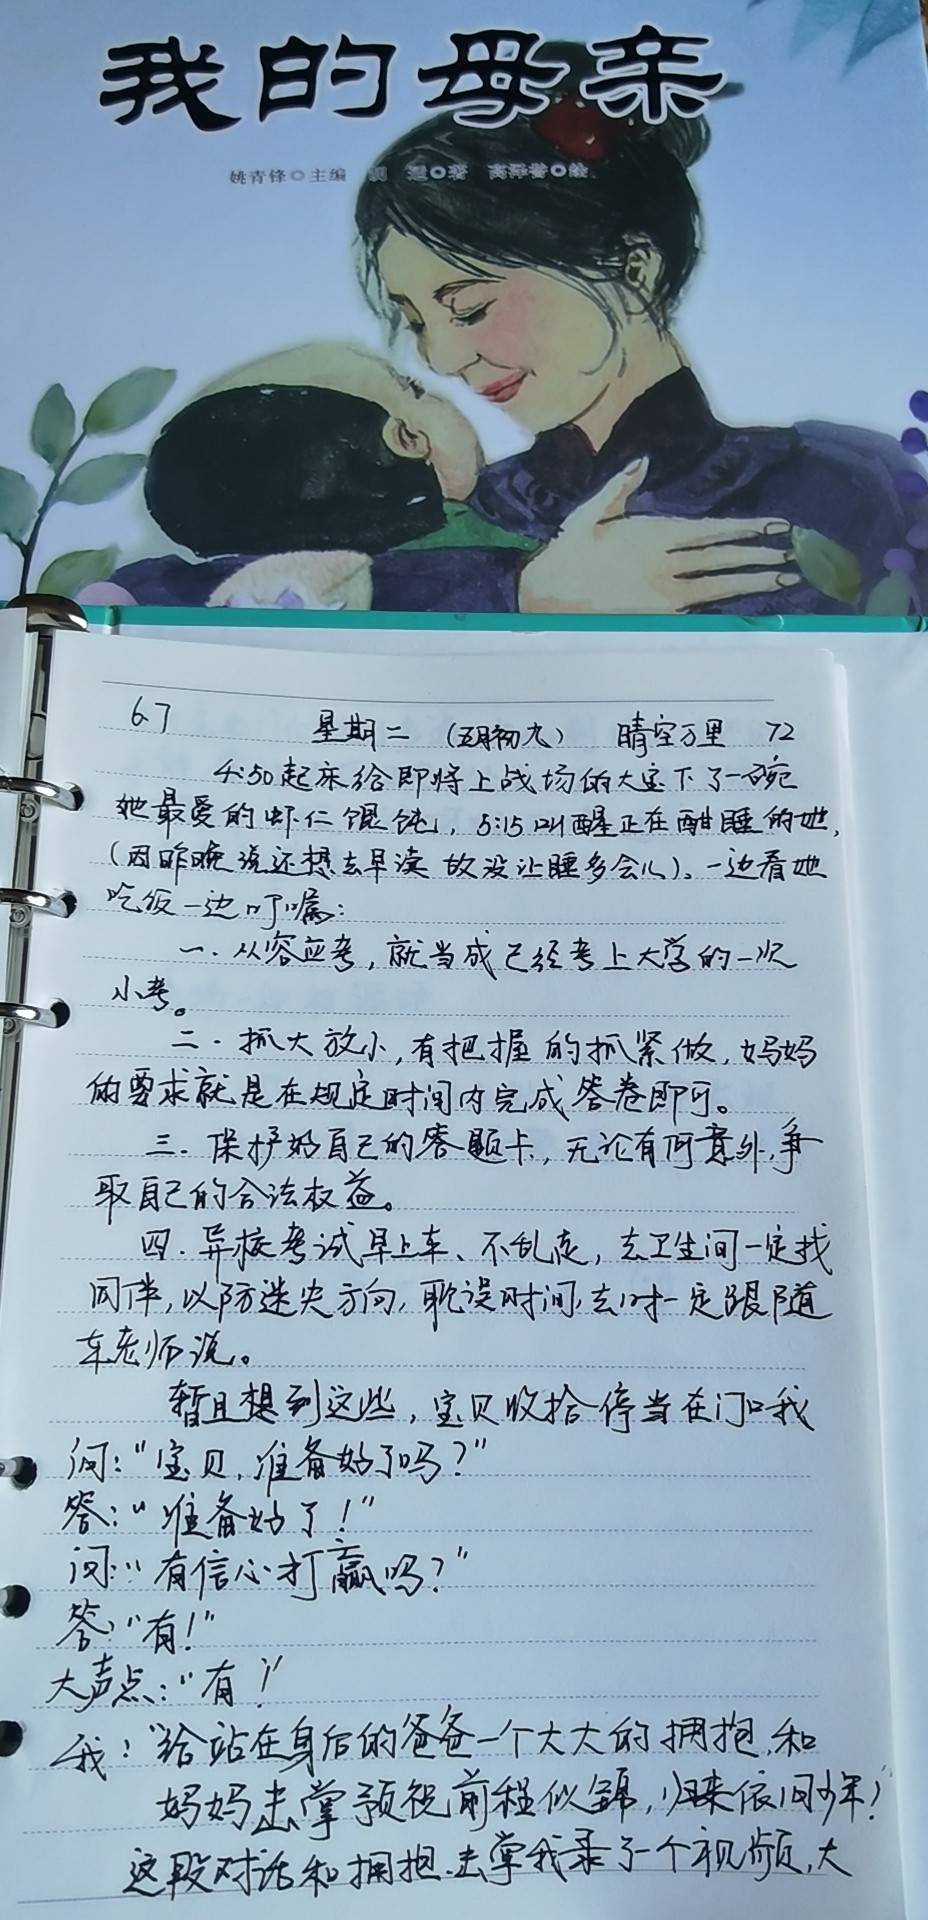 我的母亲
姚青锋◎主编 胡 适◎著 高洋誉◎绘
6.7 星期二 (五月初九) 晴空万里 72
4:50起床给即将上战场的大宝下了一碗
她最爱的虾仁馄饨, 5:15叫醒正在酣睡的她,
(因昨晚说还想去早读 故没让睡多会儿)。一边看她
吃饭一边叮嘱:
一. 从容应考, 就当成已经考上大学的一次
小考。
二. 抓大放小, 有把握的抓紧做, 妈妈
的要求就是在规定时间内完成答卷即可。
三. 保护好自己的答题卡, 无论有何意外, 争
取自己的合法权益。
四. 异校考试早上车、不乱走, 去卫生间一定找
同伴, 以防迷失方向, 耽误时间, 去时一定跟随
车老师说。
暂且想到这些, 宝贝收拾停当在门口我
问:"宝贝, 准备好了吗?"
答:"准备好了!"
问:"有信心打赢吗?"
答:"有!"
大声点:"有!"
我:"给站在身后的爸爸一个大大的拥抱, 和
妈妈击掌预祝前程似锦, 归来依旧少年!"
这段对话和拥抱.击掌我录了一个视频, 大